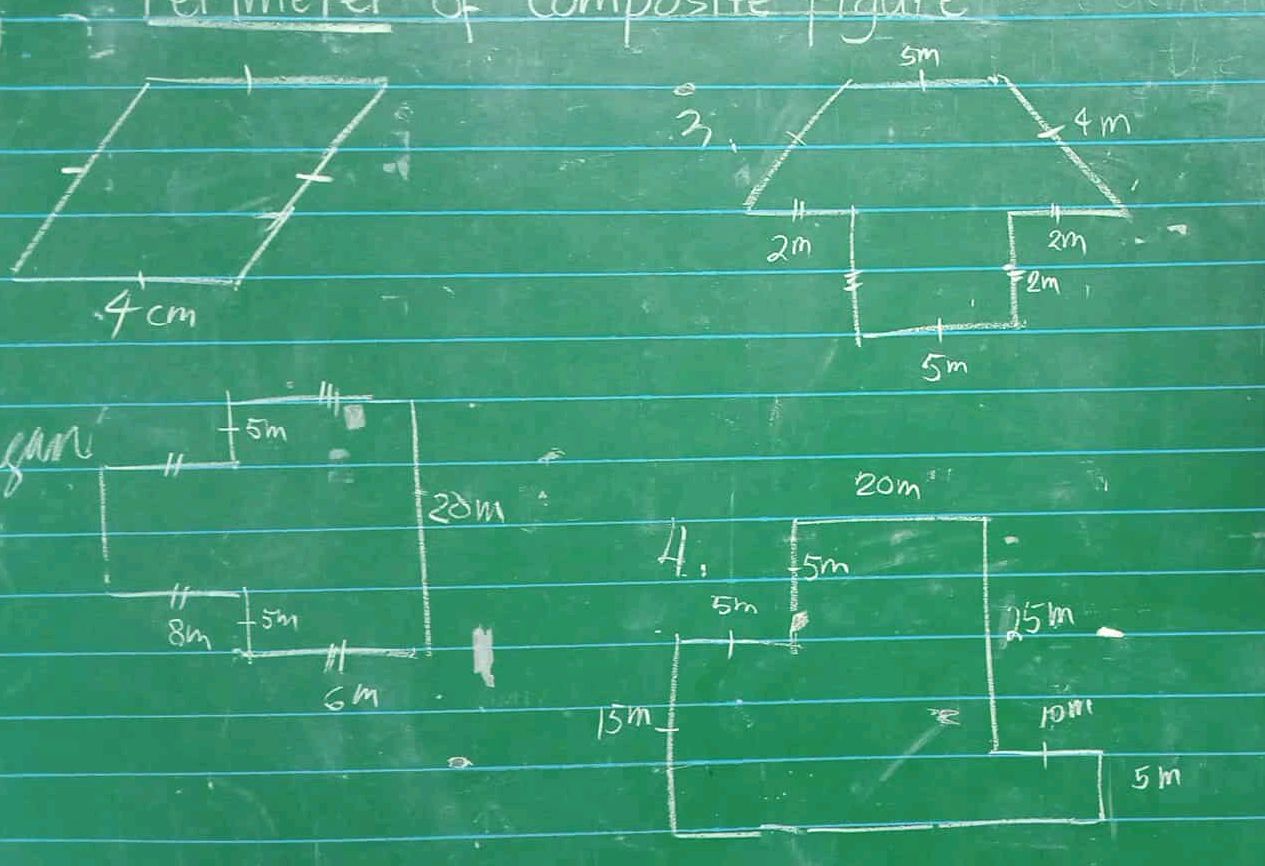 Perimeter of Composite Figure
4 cm
3.
5m
4m
2m
2m
2m
5m
5m
20m
8m
5m
6m
4.
20m
5m
5m
25m
15m
10m
5m